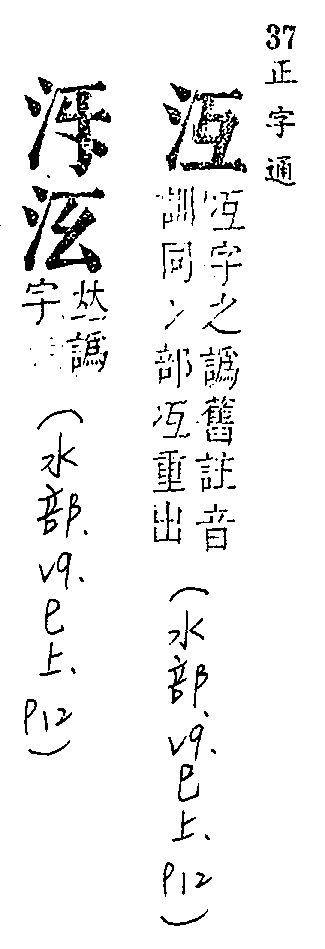 37正字通
沍
冱字之譌舊註音
訓同冫部冱重出
(水部.V9.巳上.P12)
汯
𠀤譌
字
(水部.V9.巳上.P12)